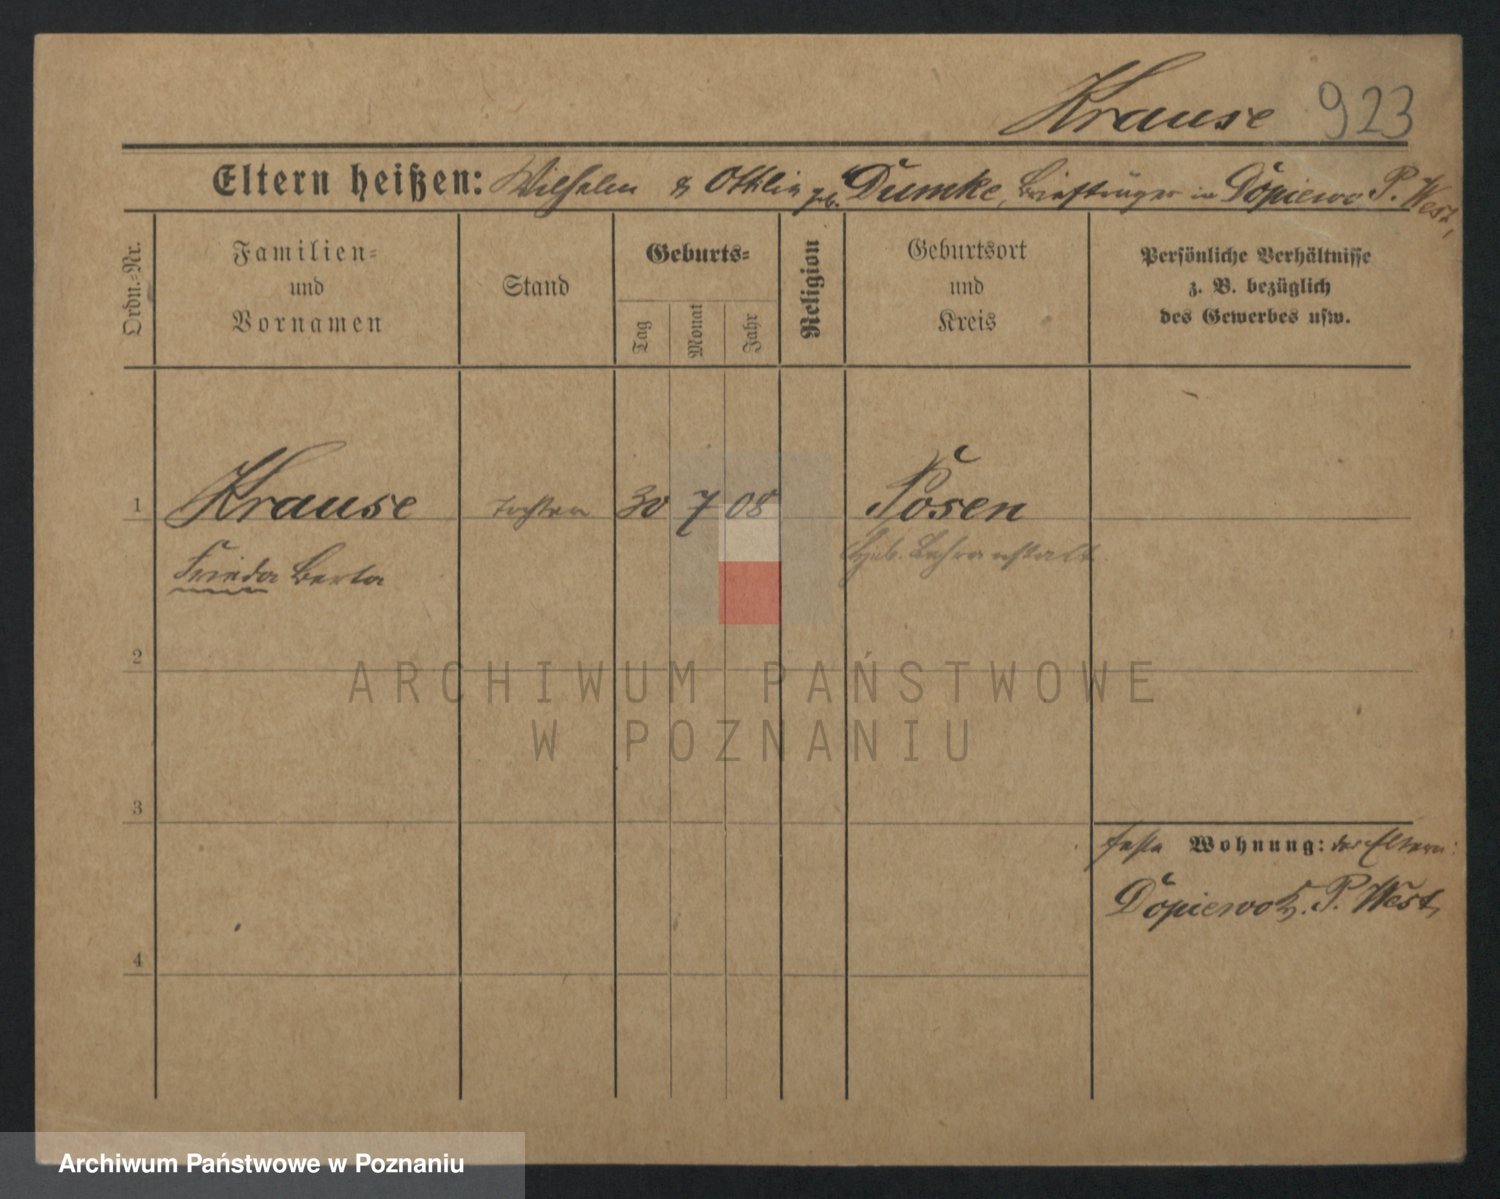 Krause 923
Eltern heißen: Wilhelm & Ottilie geb. Dumke, Briefträger in Dopiewo P. West,
Ordn.-Nr.
Familien-
und
Vornamen
Stand
Geburts-
Tag
Monat
Jahr
Religion
Geburtsort
und
Kreis
Persönliche Verhältnisse
z. B. bezüglich
des Gewerbes usw.
1 Krause Tochter 30 7 08 Posen
Frieda Berta Heb. Lehranstalt
2
ARCHIWUM PAŃSTWOWE
W POZNANIU
3
feste Wohnung: der Eltern:
Dopiewo P. West,
4
Archiwum Państwowe w Poznaniu